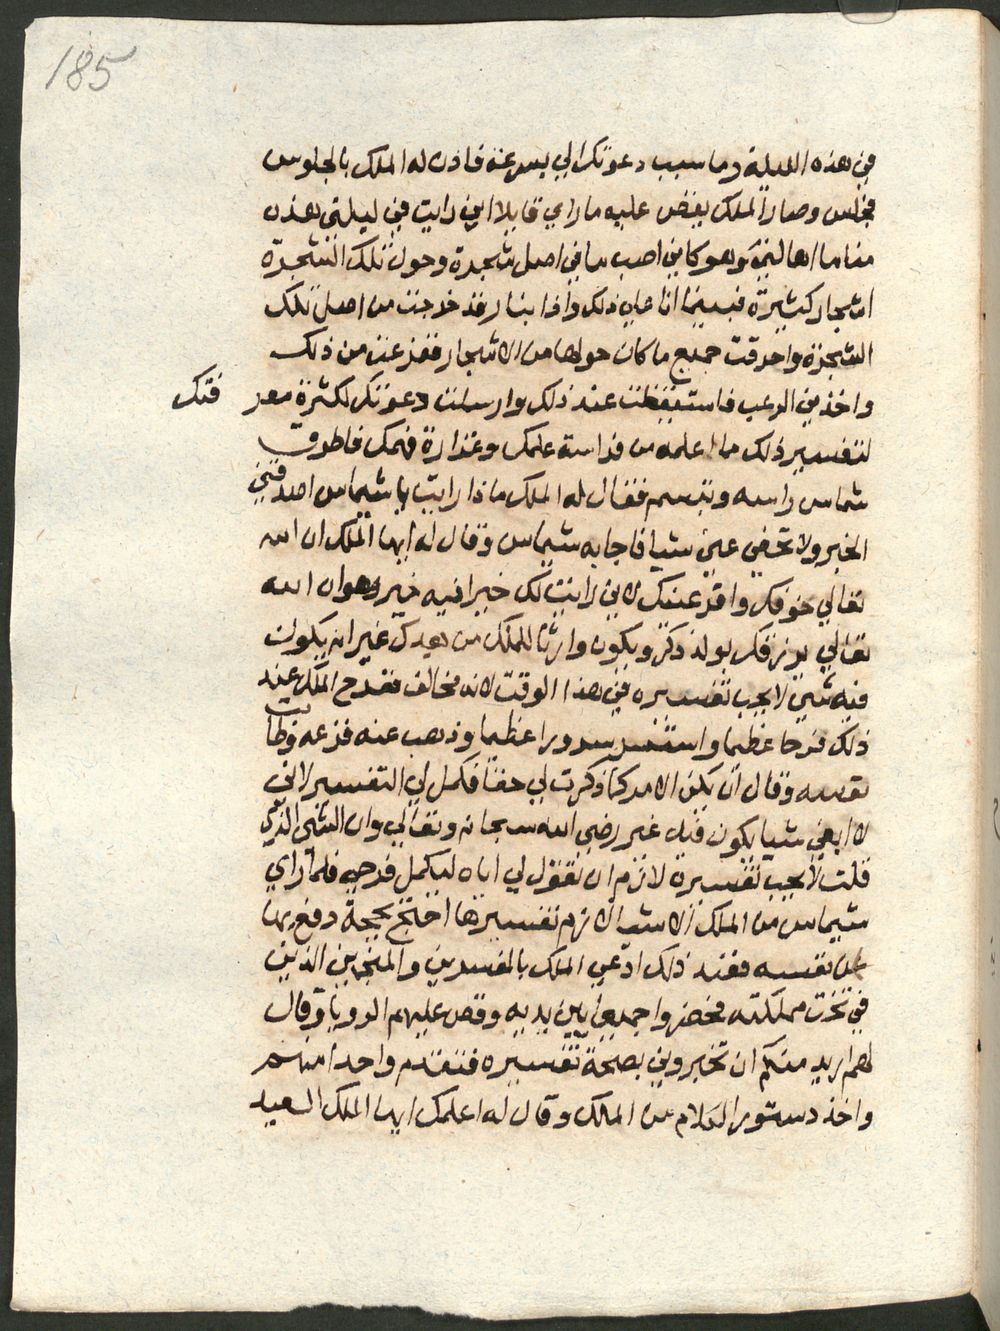 185
في هذه الليلة وما سبب دعوتك الي بسرعة فاذن له الملك بالجلوس
فجلس وصار الملك يقص عليه ما راي قايلا اني رايت في ليلتي هذه
مناما اهالني وهو كاني اصب ما في اصل شجرة وحول تلك الشجرة
اشجار كثيرة فبينما انا في ذلك واذا بنار قد خرجت من اصل تلك
الشجرة واحرقت جميع ما كان حولها من الاشجار ففزعت من ذلك
واخذني الرعب فاستيقظت عند ذلك وارسلت دعوتك لكثرة معر فتك
لتفسير ذلك مما اعلمه من فراسة علمك وغزارة فهمك فاطرق
شماس راسه وتبسم فقال له الملك ماذا رايت يا شيماس اصدقني
الخبر ولا تخفي عني شيا فاجابه شيماس وقال له ايها الملك ان الله
تعالي خوفك واقر عينك لاني رايت لك خيرا فيه خير وهو ان الله
تعالي يرزقك بولد ذكر ويكون وارثا للملك من بعدك غير انه يكون
فيه شي لا يجب تفسيره في هذا الوقت لانه مخالف ففرح الملك عند
ذلك فرحا عظيما واستبشر سرورا عظيما وذهب عنه فزعه وطابت
نفسه وقال ان يكن الامر كما ذكرت لي حقا فكمل لي التفسير لاني
لا ابغي شيا يكون قبله غير رضي الله سبحانه وتعالي وان الشي الذي
قلت لا يجب تفسيره لازم ان تقول لي اياه ليكمل فرحي فلما راي
شيماس من الملك الاشيا الازم تفسيرها احتج بحجة دفع بها
عن نفسه فعند ذلك ادعي الملك بالمفسرين والمنجمين الذين
في تخت مملكته فحضروا جميعا بين يديه وقص عليهم الرويا وقال
لهم اريد منكم ان تخبروني بصحة تفسيره فتقدم واحدا منهم
واخذ دستور الكلام من الملك وقال له اعلمك ايها الملك السعيد